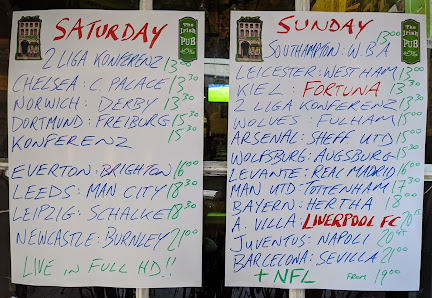 SATURDAY
The Irish PUB
2 LIGA KONFERENZ 13 00
CHELSEA : C. PALACE 13 30
NORWICH : DERBY 13 30
DORTMUND : FREIBURG 15 30
KONFERENZ 15 30
EVERTON : BRIGHTON 16 00
LEEDS : MAN CITY 18 30
LEIPZIG : SCHALKE 18 30
NEWCASTLE : BURNLEY 21 00
LIVE IN FULL HD!!
SUNDAY
The Irish PUB
SOUTHAMPTON : WBA 13 00
LEICESTER : WESTHAM 13 00
KIEL : FORTUNA 13 30
2 LIGA KONFERENZ 13 30
WOLVES : FULHAM 15 00
ARSENAL : SHEFF. UTD 15 00
WOLFSBURG : AUGSBURG 15 30
LEVANTE : REAL MADRID 16 00
MAN UTD : TOTTENHAM 17 30
BAYERN : HERTHA 18 00
A. VILLA : LIVERPOOL FC 20 15
JUVENTUS : NAPOLI 20 45
BARCELONA : SEVILLA 21 00
+ NFL FROM 19 00